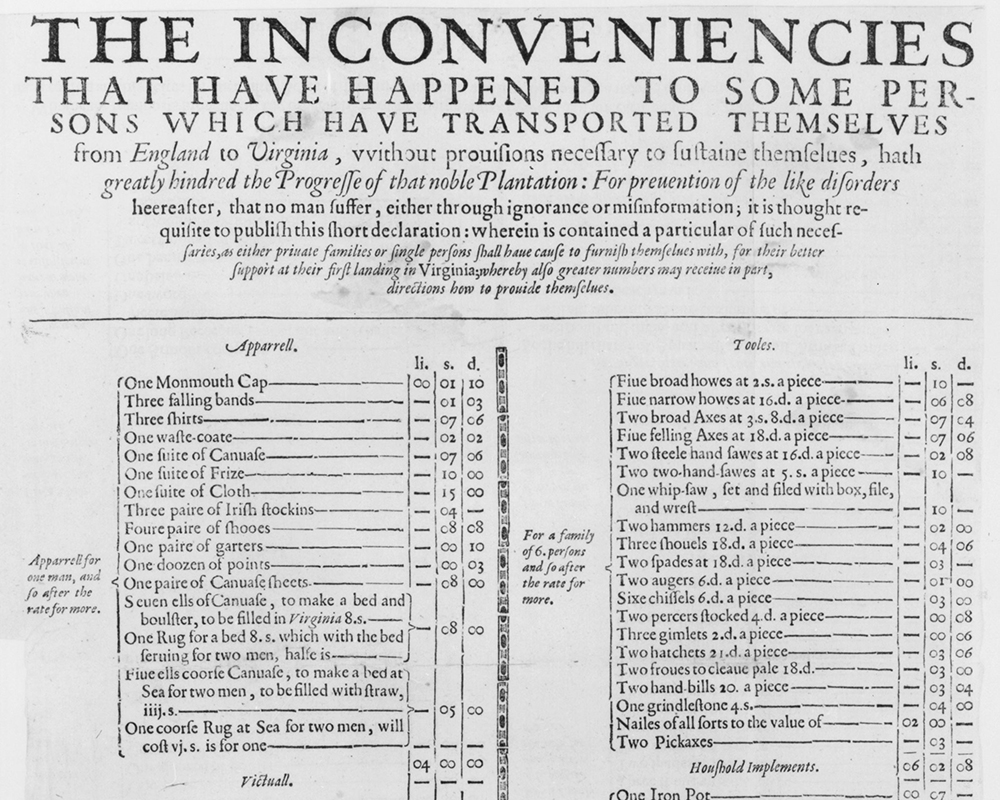 THE INCONVENIENCIES
THAT HAVE HAPPENED TO SOME PER-
SONS WHICH HAVE TRANSPORTED THEMSELVES
from England to Virginia, vvithout prouiſions neceſſary to ſuſtaine themſelues, hath
greatly hindred the Progreſſe of that noble Plantation: For preuention of the like diſorders
heereafter, that no man ſuffer, either through ignorance or miſinformation; it is thought re-
quiſite to publiſh this ſhort declaration: wherein is contained a particular of ſuch neceſ-
ſaries, as either private families or ſingle perſons ſhall haue cauſe to furniſh themſelues with, for their better
ſupport at their firſt landing in Virginia; whereby alſo greater numbers may receiue in part,
directions how to prouide themſelues.
Apparrell.
li. s. d.
Apparrell for
one man, and
ſo after the
rate for more.
One Monmouth Cap— 00 01 10
Three falling bands— — 01 03
Three ſhirts— — 07 06
One waſte-coate— — 02 02
One ſuite of Canuaſe— — 07 06
One ſuite of Frize— — 10 00
One ſuite of Cloth— — 15 00
Three paire of Iriſh ſtockins— — 04 —
Foure paire of ſhooes— — 08 08
One paire of garters— — 00 10
One doozen of points— — 00 03
One paire of Canuaſe ſheets— — 08 00
Seuen ells of Canuaſe, to make a bed and
boulſter, to be filled in Virginia 8.s.—
— 08 00
One Rug for a bed 8.s. which with the bed
ſeruing for two men, halfe is—
Fiue ells coorſe Canuaſe, to make a bed at
Sea for two men, to be filled with ſtraw,
iiij.s.—
— 05 00
One coorſe Rug at Sea for two men, will
coſt vj.s. is for one—
04 00 00
Victuall.
Tooles.
li. s. d.
For a family
of 6. perſons
and ſo after
the rate for
more.
Fiue broad howes at 2.s. a piece— — 10 —
Fiue narrow howes at 16.d. a piece— — 06 08
Two broad Axes at 3.s.8.d. a piece— — 07 04
Fiue felling Axes at 18.d. a piece— — 07 06
Two ſteele hand ſawes at 16.d. a piece— — 02 08
Two two-hand-ſawes at 5.s. a piece— — 10 —
One whip-ſaw, ſet and filed with box, file,
and wreſt— — 10 —
Two hammers 12.d. a piece— — 02 00
Three ſhouels 18.d. a piece— — 04 06
Two ſpades at 18.d. a piece— — 03 —
Two augers 6.d. a piece— — 01 00
Sixe chiſſels 6.d. a piece— — 03 00
Two percers ſtocked 4.d. a piece— — 00 08
Three gimlets 2.d. a piece— — 00 06
Two hatchets 21.d. a piece— — 03 06
Two froues to cleaue pale 18.d.— — 03 00
Two hand-bills 20. a piece— — 03 04
One grindleſtone 4.s.— — 04 00
Nailes of all ſorts to the value of— 02 00 —
Two Pickaxes— — 03 —
06 02 08
Houſhold Implements.
One Iron Pot— 00 07 —